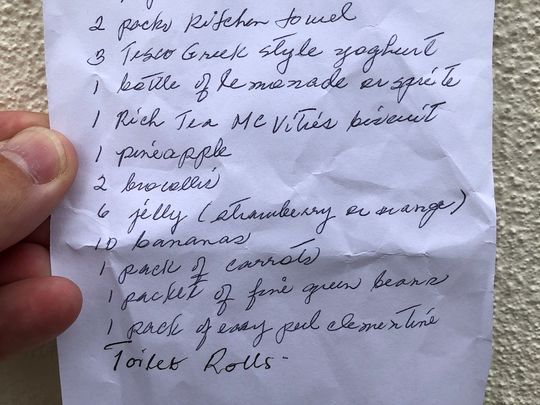 2 packs Kitchen towel
3 Tesco Greek style yoghurt
1 bottle of lemonade or sprite
1 Rich Tea McVities biscuit
1 pineapple
2 brocollis
6 jelly (strawberry or orange)
10 bananas
1 pack of carrots
1 packet of fine green beans
1 pack of easy peel clementine
Toilet Rolls-